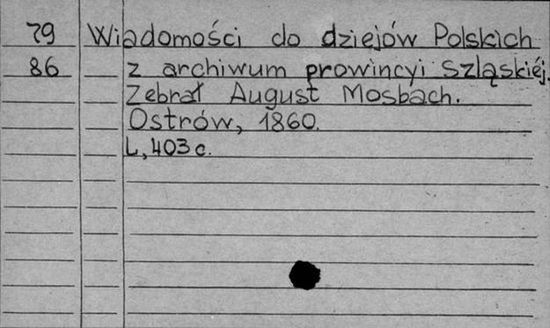 79 Wiadomości do dziejów Polskich
86 z archiwum prowincyi szląskiéj.
Zebrał August Mosbach.
Ostrów, 1860.
L, 403 c.